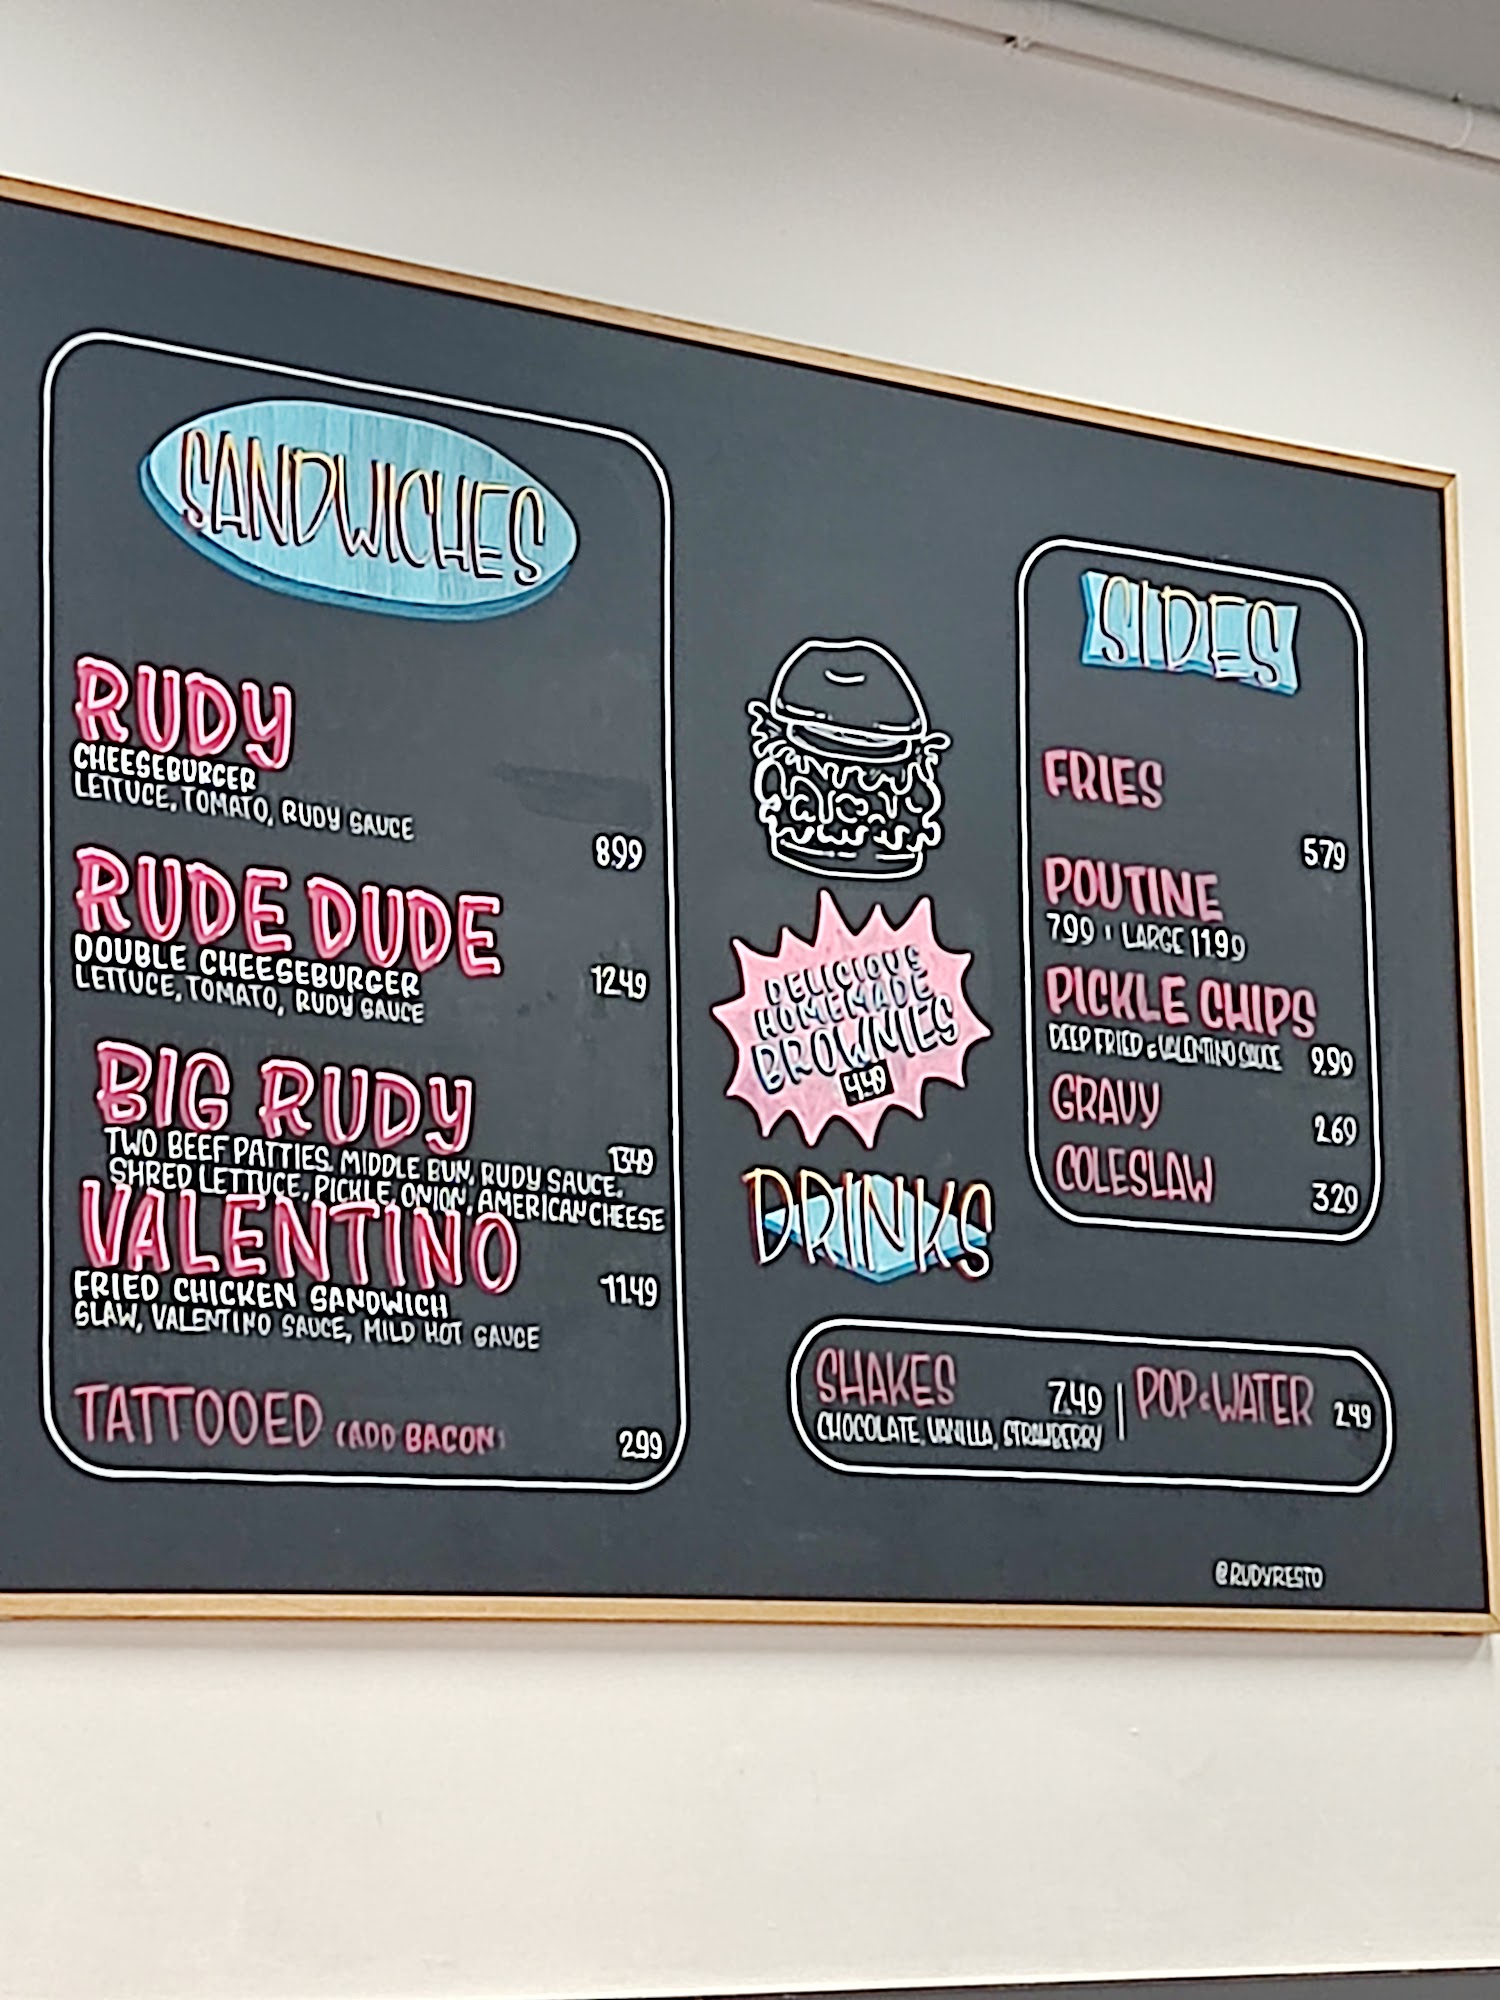 SANDWICHES
RUDY
CHEESEBURGER
LETTUCE, TOMATO, RUDY SAUCE
8.99
RUDE DUDE
DOUBLE CHEESEBURGER
LETTUCE, TOMATO, RUDY SAUCE
12.49
BIG RUDY
TWO BEEF PATTIES, MIDDLE BUN, RUDY SAUCE,
SHRED LETTUCE, PICKLE, ONION, AMERICAN CHEESE
13.49
VALENTINO
FRIED CHICKEN SANDWICH
SLAW, VALENTINO SAUCE, MILD HOT SAUCE
11.49
TATTOOED (ADD BACON)
2.99
DELICIOUS
HOMEMADE
BROWNIES
4.49
SIDES
FRIES
5.79
POUTINE
7.99 • LARGE 11.99
PICKLE CHIPS
DEEP FRIED & VALENTINO SAUCE 9.99
GRAVY
2.69
COLESLAW
3.29
DRINKS
SHAKES 7.49
CHOCOLATE, VANILLA, STRAWBERRY
POP & WATER 2.49
@RUDYRESTO